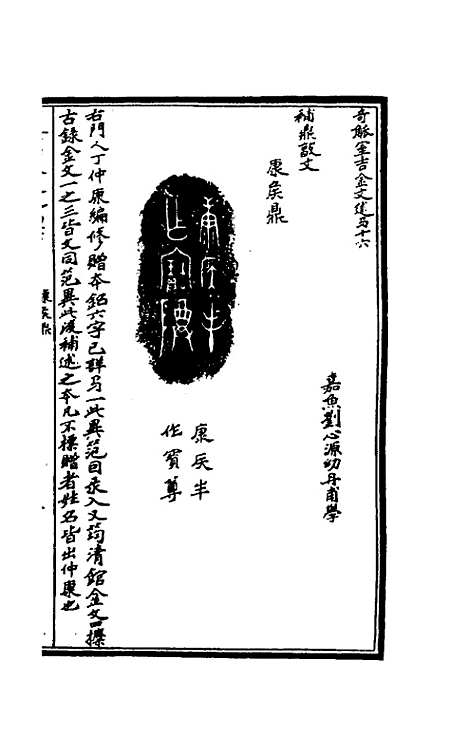 奇觚室吉金文述卷十六
嘉魚劉心源幼丹甫學
補鼎𣪘文
康矦鼎
康矦丰
作寶尊
右門人丁仲康編修贈本銘六字已詳卷一此異范因彔入又筠清館金文四攈
古錄金文一之三皆文同范異此後補述之本凡不標贈者姓名皆出仲康也
康矦鼎